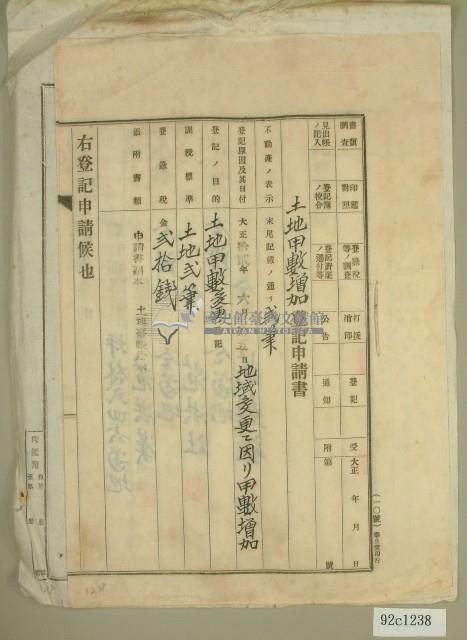 (一〇號)
受 大正 年 月 日
附 第 號
書類調査 印鑑對照 登錄稅等ノ調査 打撥消印 登記
見出帳ノ記入 登記簿ノ校合 登記濟證ノ還付等 公告 通知
土地甲數增加登記申請書
不動產ノ表示 末尾記載ノ通リ弐筆
登記原因及其日付 大正拾弐年六月五日地域変更ニ因リ甲數增加
登記ノ目的 土地甲數変更登記
課稅標準 土地弐筆
登錄稅 金弐拾錢
添附書類 申請書副本 土地
右登記申請候也
印鑑附
國史館臺灣文獻館
TAIWAN HISTORICA
92c1238